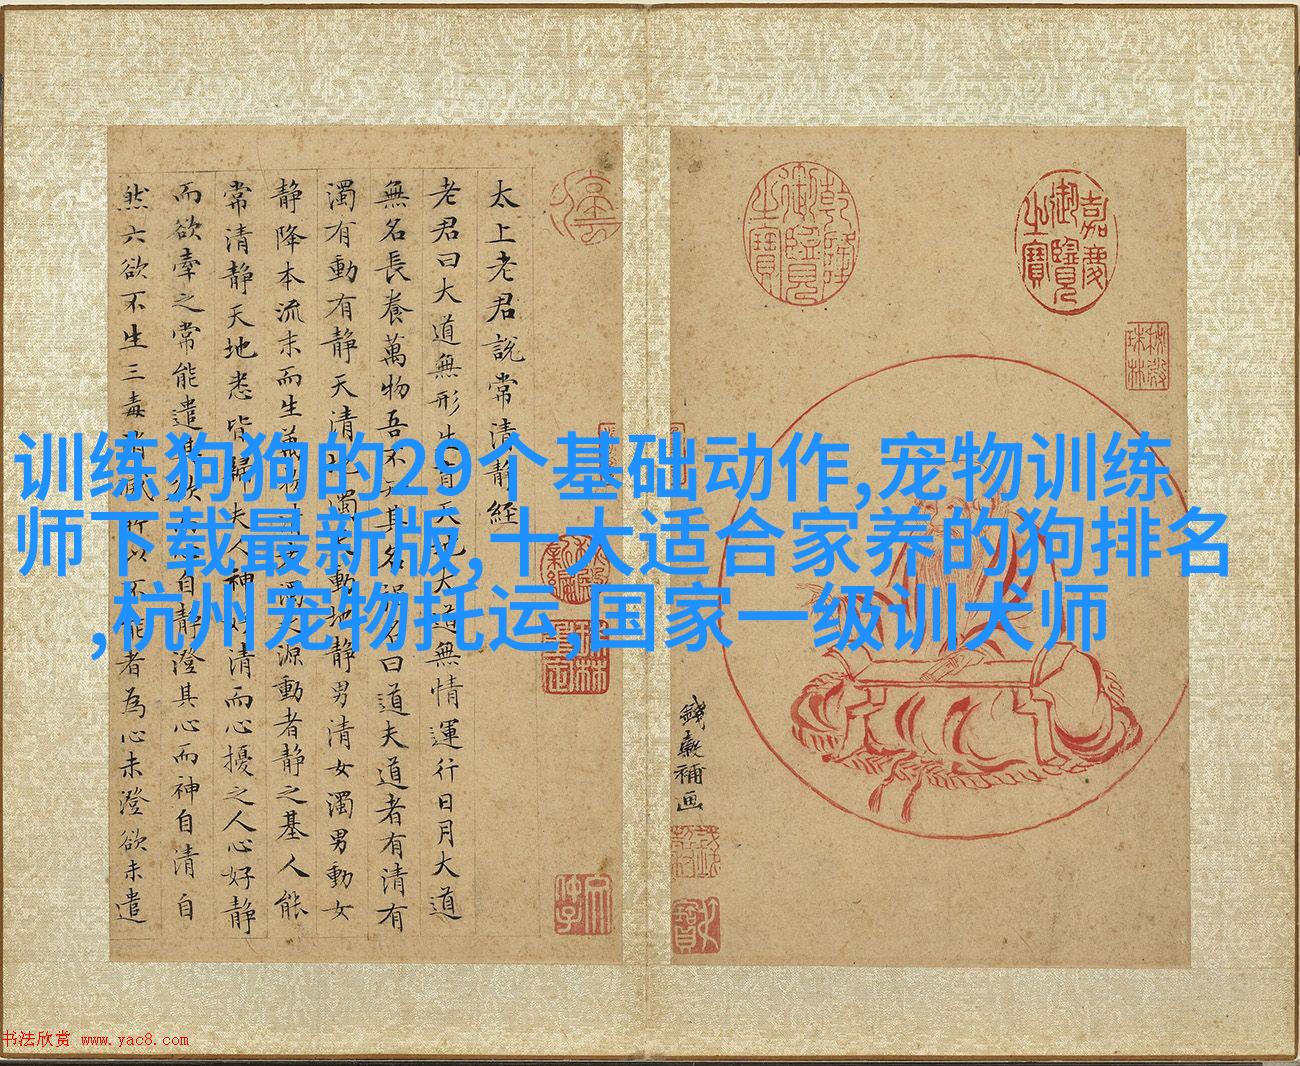 训练狗狗的29个基础动作,宠物训练
师下载最新版,十大适合家养的狗排名
,杭州宠物托运,国家一级训犬师
嘉慶御覽之寶
乾隆御覽之寶
錢穀補画
太上老君說常清静經
老君曰大道無形生育天地大道無情運行日月大道
無名長養萬物吾不知其名强名曰道夫道者有清有
濁有動有静天清地濁天動地静男清女濁男動女
静降本流末而生萬物清者濁之源動者静之基人能
常清静天地悉皆歸夫人神好清而心擾之人心好静
而欲牽之常能遣其欲而心自静澄其心而神自清自
然六欲不生三毒消滅所以不能者為心未澄欲未遣
书法欣赏 www.yac8.com